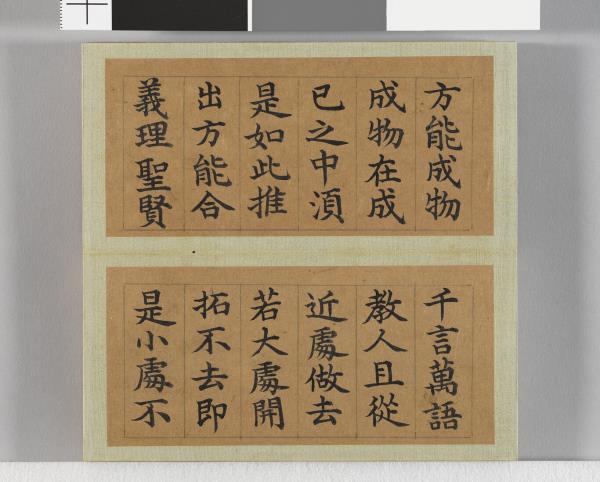 方能成物
成物在成
已之中湏
是如此推
出方能合
義理聖賢
千言萬語
教人且從
近處做去
若大處開
拓不去即
是小處不